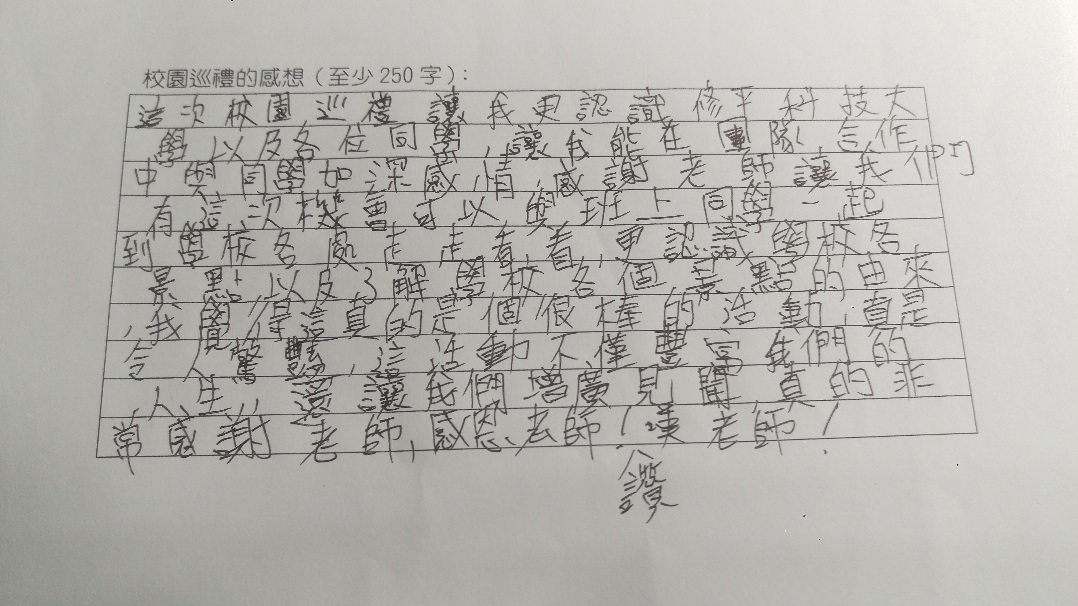 校園巡禮的感想（至少250字）：
這次校園巡禮讓我更認識修平科技大
學以及各位同學,讓我能在團隊合作
中與同學加深感情,感謝老師讓我們
有這次機會可以與班上同學一起
到學校各處走走看看,更認識學校各
景點,以及了解學校各個景點的由來
,我覺得這真的是個很棒的活動,真是
令人驚豔,這活動不僅豐富我們的
,人生,還讓我們增廣見聞,真的非
常感謝老師,感恩老師!讚老師!
讚